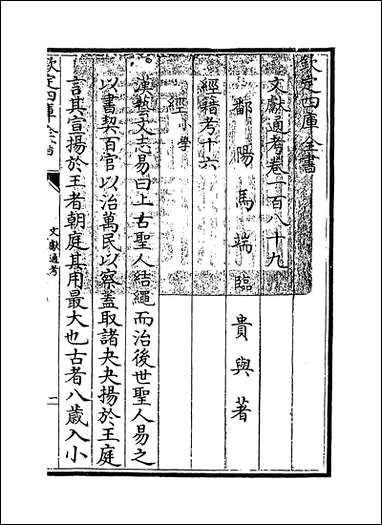 欽定四庫全書
文獻通考卷一百八十九
鄱陽馬端臨貴與著
經籍考十六
經小學
漢藝文志易曰上古聖人結繩而治後世聖人易之
以書契百官以治萬民以察蓋取諸夬夬揚於王庭
言其宣揚於王者朝庭其用最大也古者八歲入小
欽定四庫全書
文獻通考
一